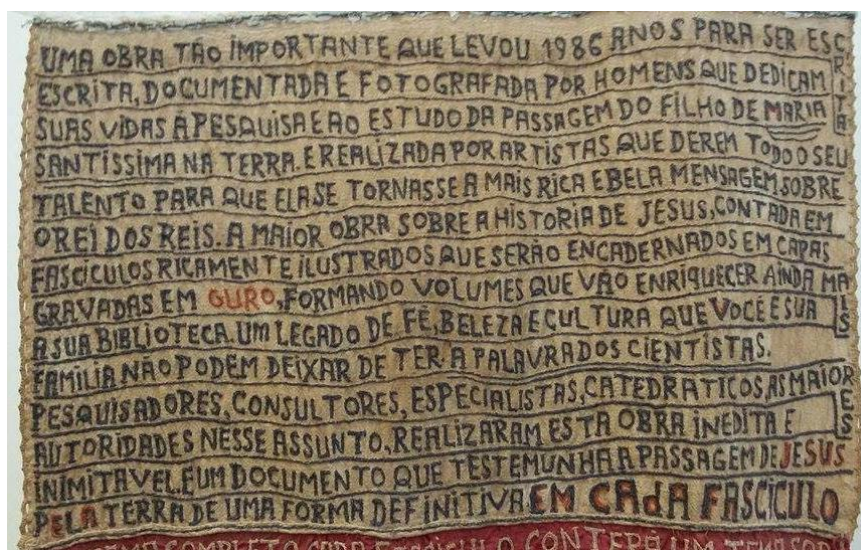 UMA OBRA TÃO IMPORTANTE QUE LEVOU 1986 ANOS PARA SER ESCRITA
ESCRITA, DOCUMENTADA E FOTOGRAFADA POR HOMENS QUE DEDICAM
SUAS VIDAS A PESQUISA E AO ESTUDO DA PASSAGEM DO FILHO DE MARIA
SANTISSIMA NA TERRA. E REALIZADA POR ARTISTAS QUE DEREM TODO O SEU
TALENTO PARA QUE ELA SE TORNASSE A MAIS RICA E BELA MENSAGEM, SOBRE
O REI DOS REIS. A MAIOR OBRA SOBRE A HISTORIA DE JESUS, CONTADA EM
FASCICULOS RICAMENTE ILUSTRADOS QUE SERÃO ENCADERNADOS EM CAPAS
GRAVADAS EM OURO, FORMANDO VOLUMES QUE VÃO ENRIQUECER AINDA MAIS
A SUA BIBLIOTECA. UM LEGADO DE FÉ, BELEZA E CULTURA QUE VOCÊ E SUA
FAMÍLIA NÃO PODEM DEIXAR DE TER. A PALAVRA DOS CIENTISTAS.
PESQUISADORES, CONSULTORES, ESPECIALISTAS, CATEDRATICOS, AS MAIORES
AUTORIDADES NESSE ASSUNTO, REALIZARAM ESTA OBRA INEDITA E
INIMITAVEL. E UM DOCUMENTO QUE TESTEMUNHA A PASSAGEM DE JESUS
PELA TERRA DE UMA FORMA DEFINITIVA EM CADA FASCICULO
COMPLETO CADA FASCICULO CONTERA UM TEMA